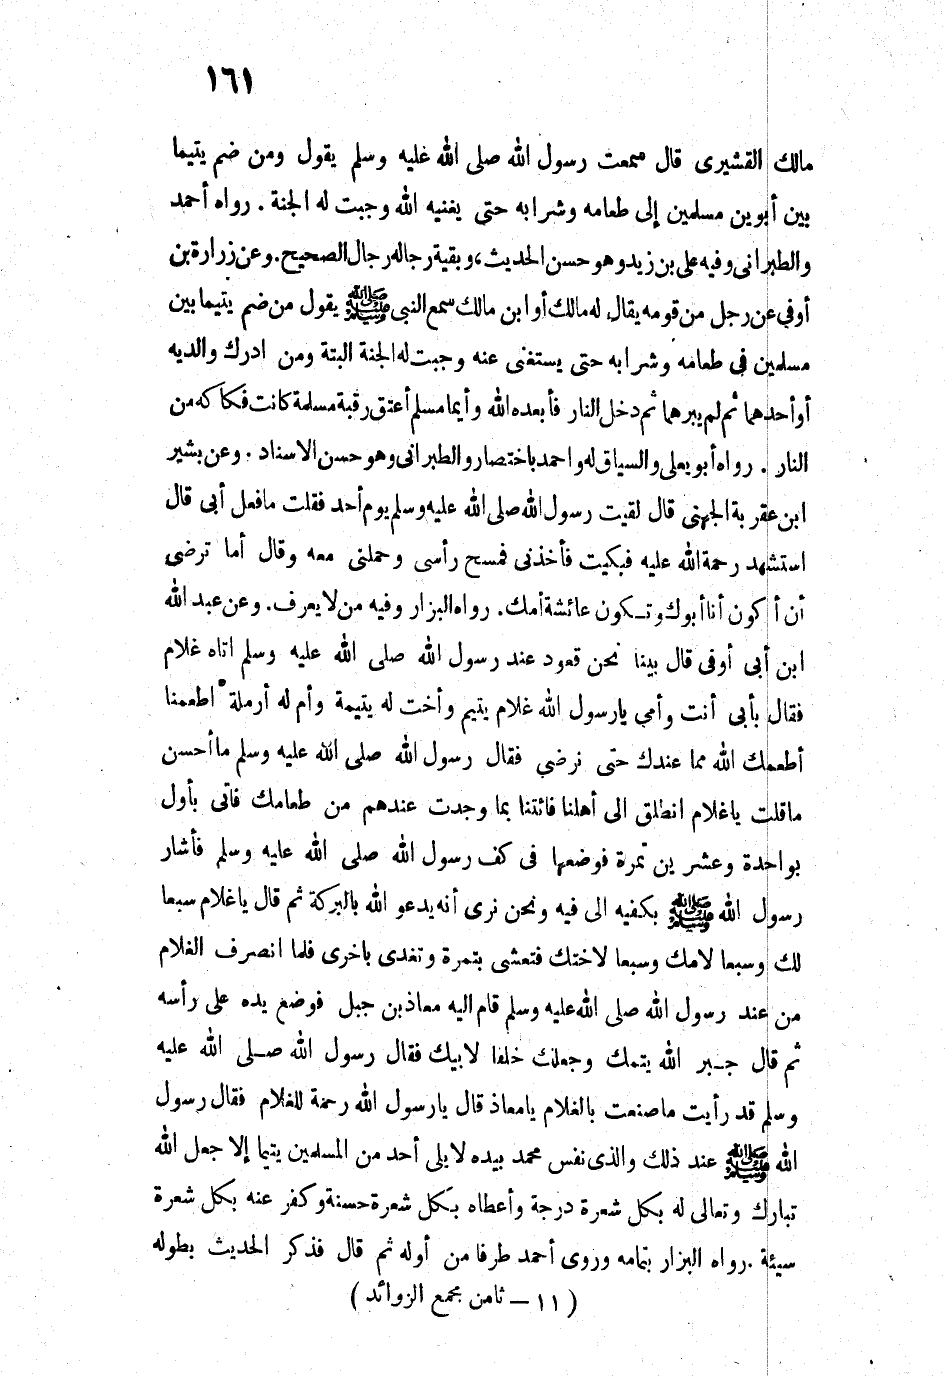 ١٦١
مالك القشيرى قال سمعت رسول الله صلى الله عليه وسلم يقول ومن ضم يتيما
بين أبوين مسلمين إلى طعامه وشرابه حتى يغنيه الله وجبت له الجنة . رواه أحمد
والطبرانى وفيه على بن زيد وهو حسن الحديث ، وبقية رجاله رجال الصحيح . وعن زرارة بن
أوفى عن رجل من قومه يقال له مالك أو ابن مالك سمع النبى ﷺ يقول من ضم يتيما بين
مسلمين فى طعامه وشرابه حتى يستغنى عنه وجبت له الجنة البتة ومن ادرك والديه
أو أحدهما ثم لم يبرهما ثم دخل النار فأبعده الله وأيما مسلم أعتق رقبة مسلمة كانت فكاكه من
النار . رواه أبو يعلى والسياق له واحمد باختصار والطبرانى وهو حسن الاسناد . وعن بشير
ابن عقربة الجهنى قال لقيت رسول الله صلى الله عليه وسلم يوم أحد فقلت مافعل أبى قال
استشهد رحمة الله عليه فبكيت فأخذنى فمسح رأسى وحملنى معه وقال أما ترضى
أن أكون أنا أبوك وتـكون عائشة أمك . رواه البزار وفيه من لا يعرف . وعن عبد الله
ابن أبى أوفى قال بينا نحن قعود عند رسول الله صلى الله عليه وسلم اتاه غلام
فقال بأبى أنت وأمى يارسول الله غلام يتيم وأخت له يتيمة وأم له أرملة اطعمنا
أطعمك الله مما عندك حتى نرضي فقال رسول الله صلى الله عليه وسلم ما أحسن
ماقلت ياغلام انطلق الى أهلنا فائتنا بما وجدت عندهم من طعامك فاتى بأول
بواحدة وعشرين تمرة فوضعها فى كف رسول الله صلى الله عليه وسلم فأشار
رسول الله ﷺ بكفيه الى فيه ونحن نرى أنه يدعو الله بالبركة ثم قال ياغلام سبعا
لك وسبعا لامك وسبعا لاختك فتعشى بتمرة وتغدى باخرى فلما انصرف الغلام
من عند رسول الله صلى الله عليه وسلم قام اليه معاذ بن جبل فوضع يده على رأسه
ثم قال جـبر الله يتمك وجعلك خلفا لابيك فقال رسول الله صـلى الله عليه
وسلم قد رأيت ماصنعت بالغلام يامعاذ قال يارسول الله رحمة للغلام فقال رسول
الله ﷺ عند ذلك والذى نفس محمد بيده لايلى أحد من المسلمين يتيما إلا جعل الله
تبارك وتعالى له بكل شعرة درجة وأعطاه بكل شعرة حسنة وكفر عنه بكل شعرة
سيئة . رواه البزار بتمامه وروى أحمد طرفا من أوله ثم قال فذكر الحديث بطوله
( ١١ – ثامن مجمع الزوائد )